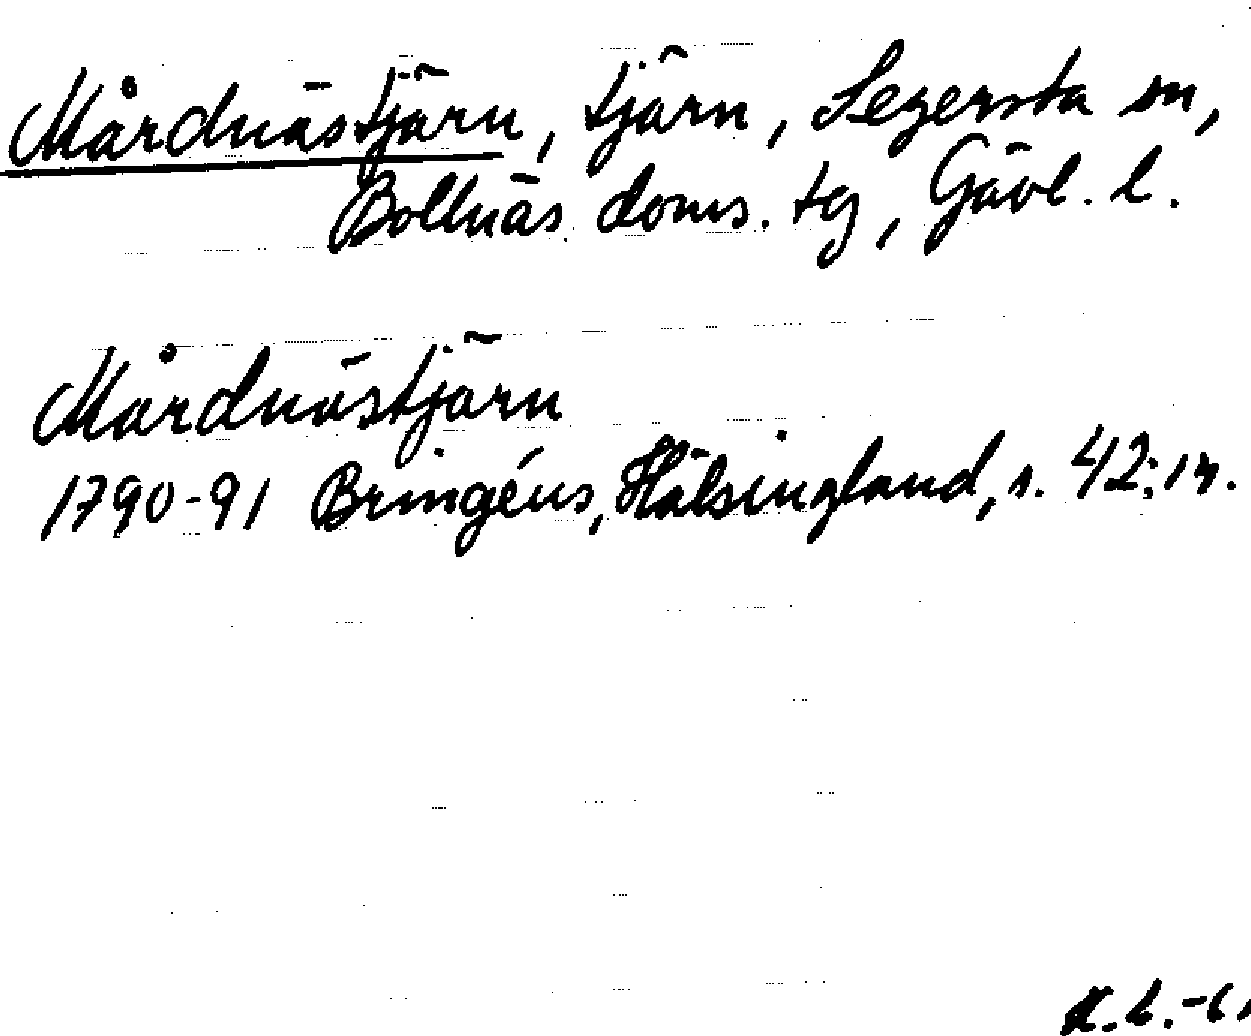 Mårdnästjärn, tjärn, Segersta sn,
Bollnäs doms. tg, Gävl. l.
Mårdnästjärn
1790-91 Bringéus, Hälsingland, s. 42; ir.